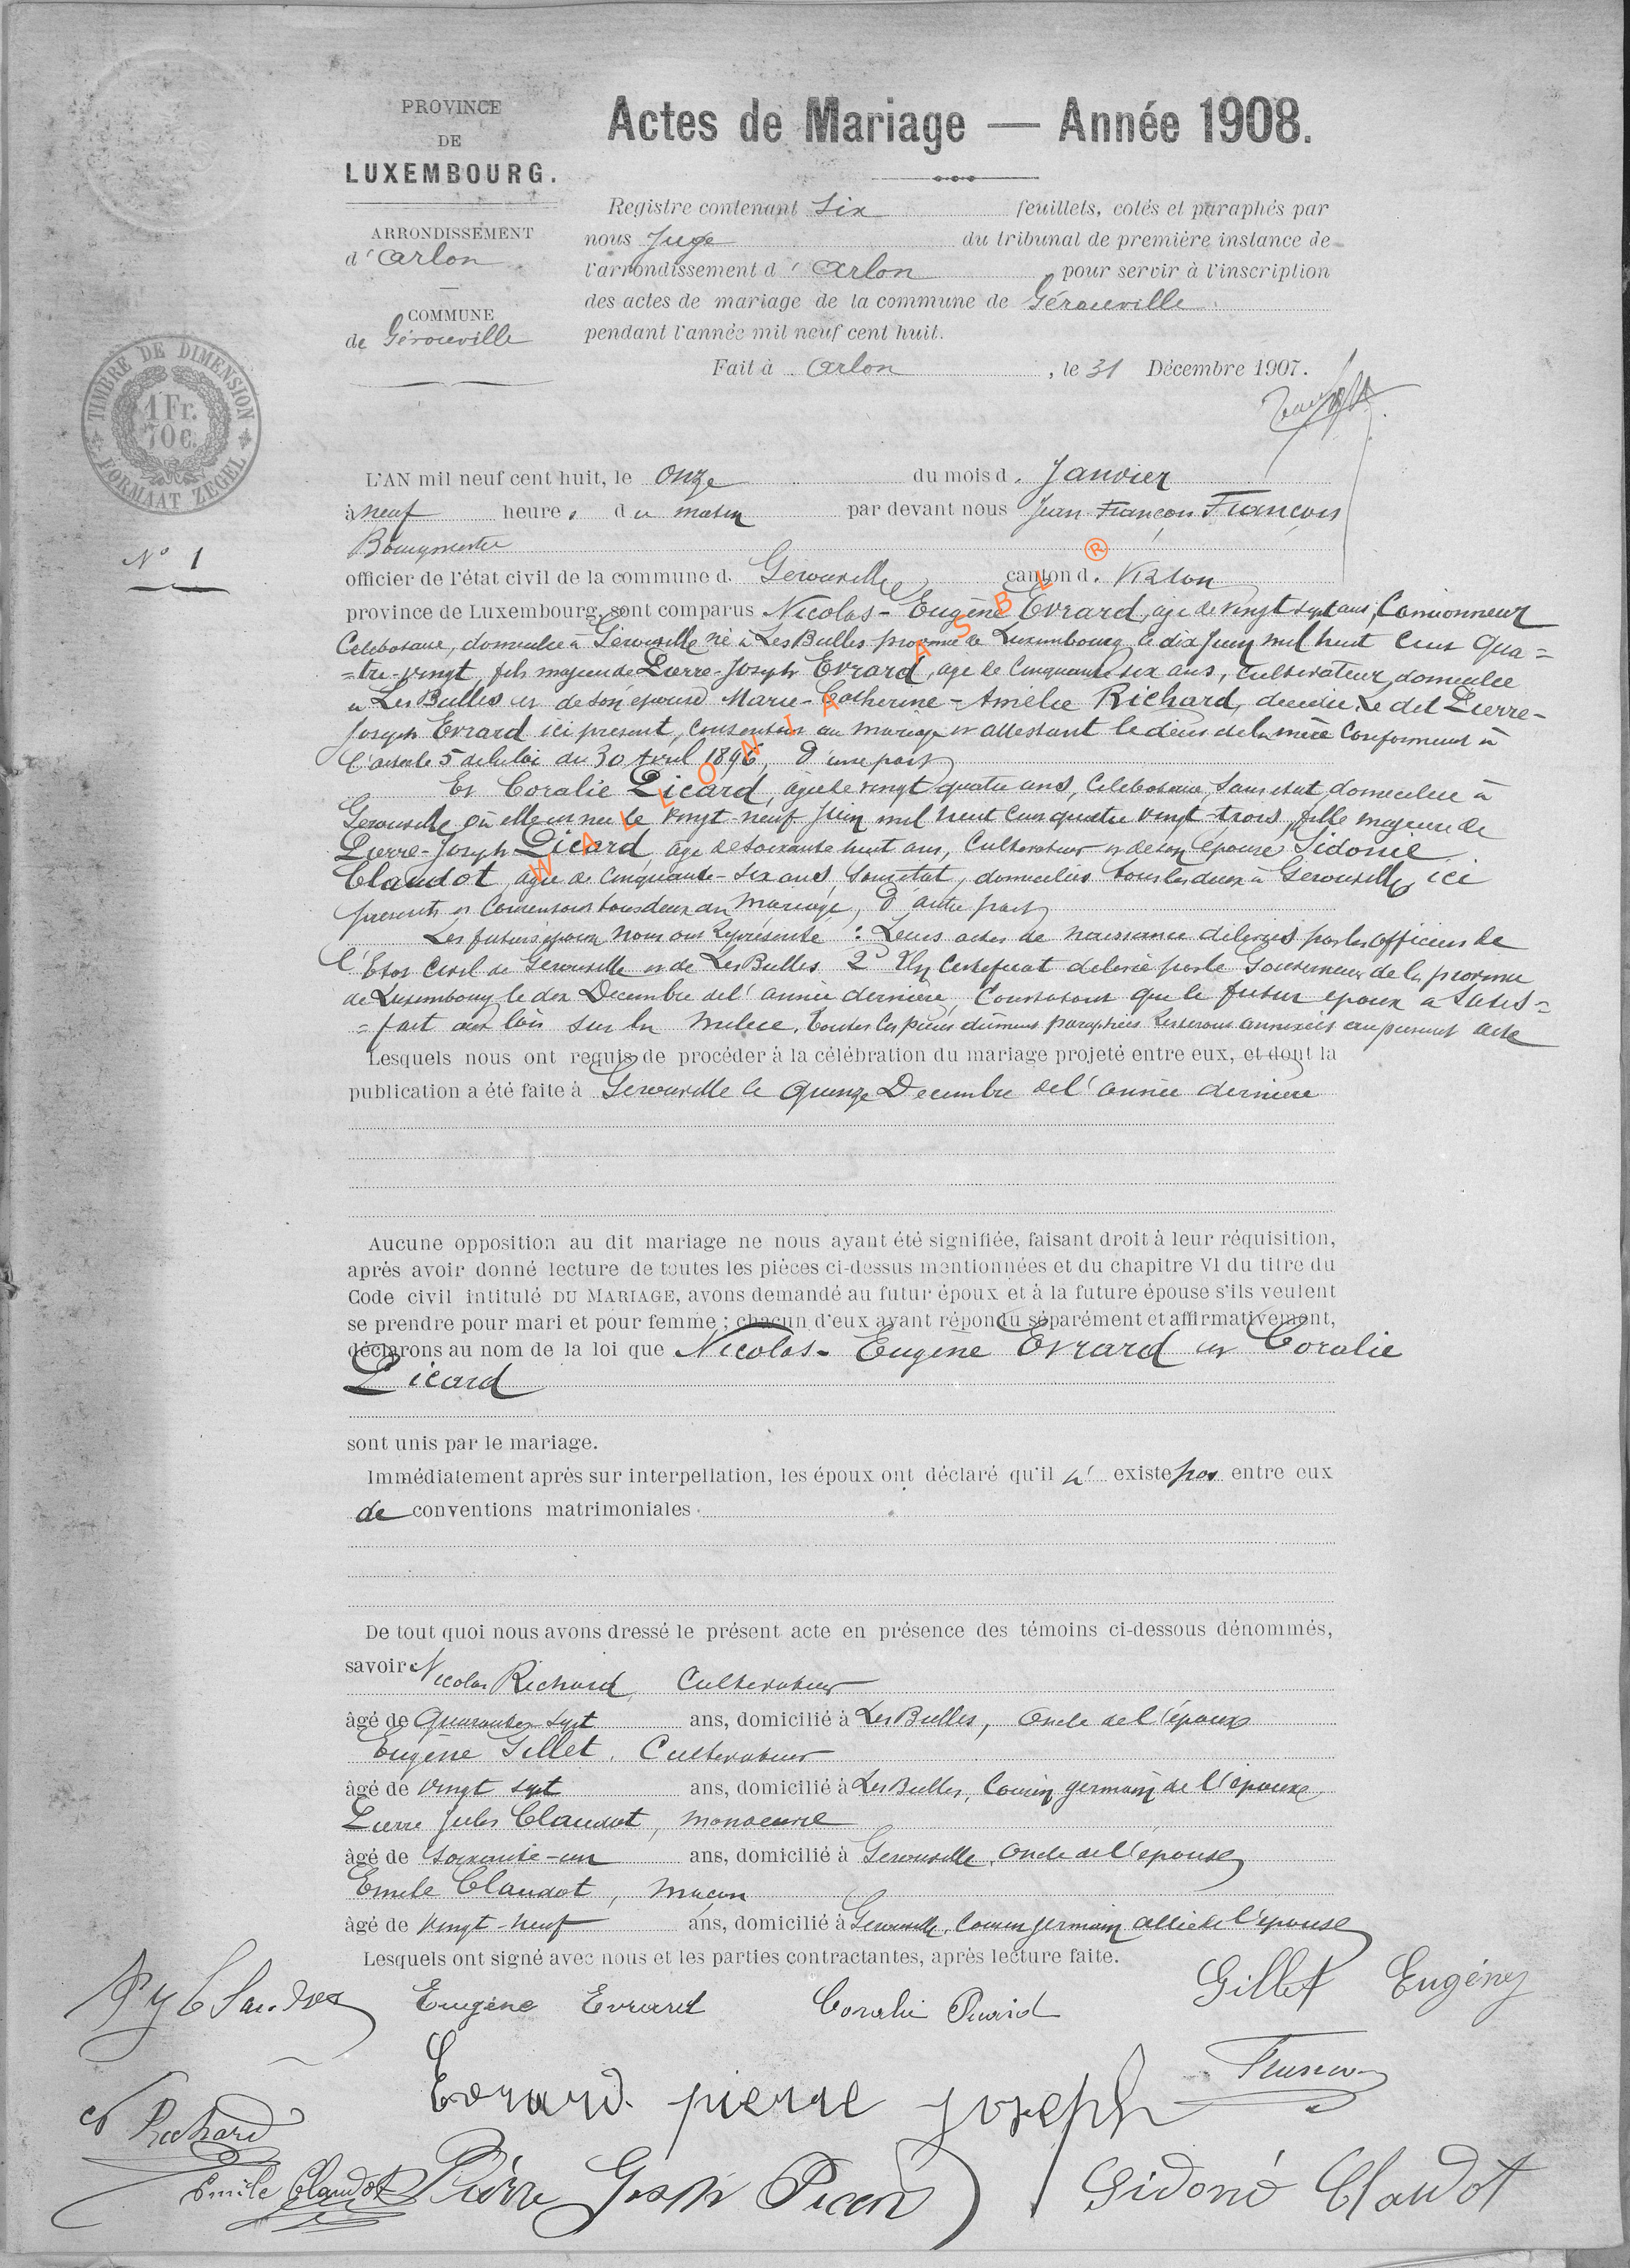 PROVINCE
DE
LUXEMBOURG.
ARRONDISSEMENT
d'Arlon
COMMUNE
de Gérouville
Actes de Mariage — Année 1908.
Registre contenant six feuillets, cotés et paraphés par
nous Juge du tribunal de première instance de
l'arrondissement d'Arlon pour servir à l'inscription
des actes de mariage de la commune de Gérouville
pendant l'année mil neuf cent huit.
Fait à Arlon, le 31 Décembre 1907.
TIMBRE DE DIMENSION
1 Fr.
70 c.
FORMAAT ZEGEL
N° 1
L'AN mil neuf cent huit, le onze du mois d. Janvier
à neuf heures du matin par devant nous Jean François François
Bourgmestre
officier de l'état civil de la commune d. Gerouville canton d. Virton
province de Luxembourg, sont comparus Nicolas-Eugène Evrard, âgé de vingt sept ans, Camionneur
Célibataire, domicilié à Gérouville né à Les Bulles province de Luxembourg le dix Juin mil huit cent qua=
=tre-vingt, fils majeur de Pierre-Joseph Evrard, âgé de cinquante six ans, cultivateur, domicilié
à Les Bulles et de son épouse Marie-Catherine-Amélie Richard, décédée. Le dit Pierre-
Joseph Evrard ici présent, consentant au mariage et attestant le décès de la mère conformément à
l'article 5 de la loi du 30 Avril 1896, D'une part
Et Coralie Picard, âgée de vingt quatre ans, Célibataire, sans état, domiciliée à
Gerouville où elle est née le vingt-neuf Juin mil huit cent quatre vingt-trois, fille majeure de
Pierre-Joseph Picard, âgé de soixante huit ans, Cultivateur et de son épouse Sidonie
Claudot, âgée de cinquante-six ans, sans état, domiciliés tous les deux à Gerouville, ici
présents et consentant tous deux au mariage, D'autre part
Les futurs époux nous ont représenté : Leurs actes de naissance délivrés par les officiers de
l'Etat Civil de Gerouville et de Les Bulles 2° Un Certificat délivré par le Gouverneur de la province
de Luxembourg le dix Décembre de l'année dernière, Constatant que le futur époux a satis=
=fait aux lois sur la milice. Toutes les pièces dûment paraphées resteront annexées au présent acte
Lesquels nous ont requis de procéder à la célébration du mariage projeté entre eux, et dont la
publication a été faite à Gerouville le quinze Décembre de l'année dernière
Aucune opposition au dit mariage ne nous ayant été signifiée, faisant droit à leur réquisition,
après avoir donné lecture de toutes les pièces ci-dessus mentionnées et du chapitre VI du titre du
Code civil intitulé DU MARIAGE, avons demandé au futur époux et à la future épouse s'ils veulent
se prendre pour mari et pour femme ; chacun d'eux ayant répondu séparément et affirmativement,
déclarons au nom de la loi que Nicolas-Eugène Evrard et Coralie
Picard
sont unis par le mariage.
Immédiatement après sur interpellation, les époux ont déclaré qu'il n' existe pas entre eux
de conventions matrimoniales.
De tout quoi nous avons dressé le présent acte en présence des témoins ci-dessous dénommés,
savoir: Nicolas Richard, Cultivateur
âgé de Quarante sept ans, domicilié à Les Bulles, oncle de l'époux
Eugène Gillet, Cultivateur
âgé de vingt sept ans, domicilié à Les Bulles, Cousin germain de l'époux
Pierre Jules Claudot, manoeuvre
âgé de soixante-un ans, domicilié à Gerouville, oncle de l'épouse
Emile Claudot, maçon
âgé de vingt-neuf ans, domicilié à Gerouville, Cousin germain allié de l'épouse
Lesquels ont signé avec nous et les parties contractantes, après lecture faite.
Eugène Evrard Coralie Picard Gillet Eugène
Evrard pierre joseph François
N Richard
Emile Claudot Pierre Joseph Picard Sidonie Claudot
WALLONIA ASBL ®